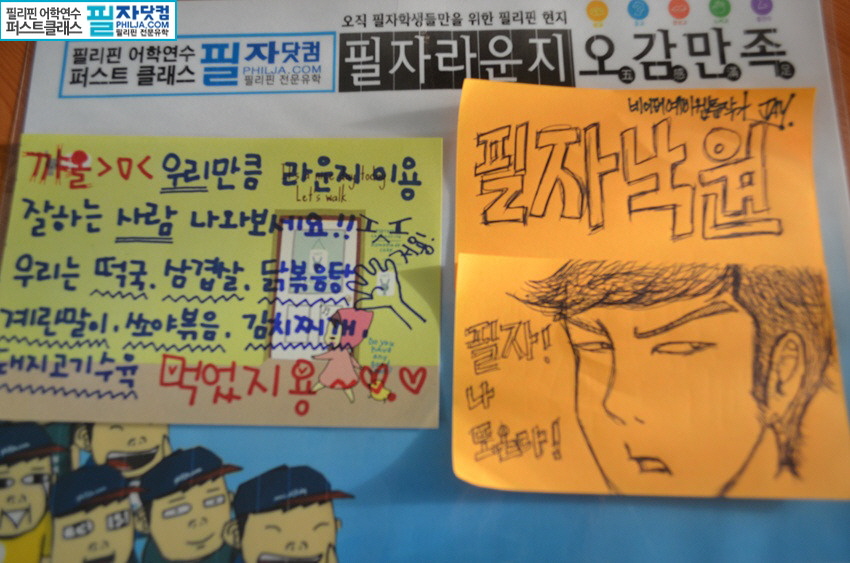 필리핀 어학연수
퍼스트클래스
필자닷컴
PHILJA.COM
필리핀 전문유학
오직 필자학생들만을 위한 필리핀 현지
필리핀 어학연수
퍼스트 클래스
필자닷컴
PHILJA.COM
필리핀 전문유학
필자라운지
오감만족
五 感 滿 足
꺄울>ㅁ< 우리만큼 라운지 이용
today
Let's walk
잘하는 사람 나와보세요!! ㅈㅈ
저용!
우리는 떡국, 삼겹살, 닭볶음탕
계란말이, 쏘야볶음, 김치찌개,
Do you
have
any
돼지고기수육 먹었지용~♡.♡♡
JAY!
필자낙원
필자!
나
또온다!
philja.com